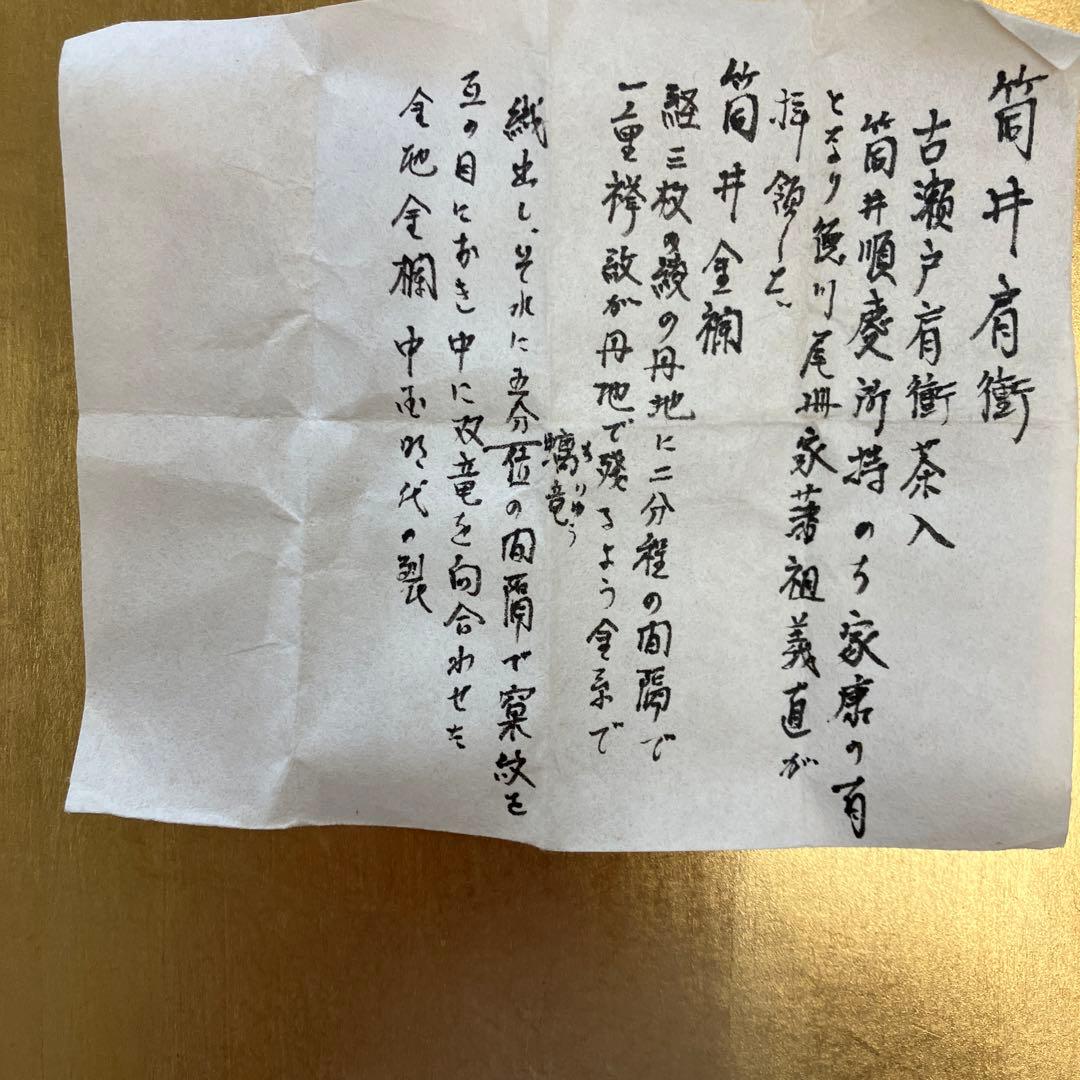 筒井肩衝
古瀬戸肩衝茶入
筒井順慶所持のち家康の有
となり徳川尾州家藩祖義直が
拝領した
筒井金襴
経三枚の綾の丹地に二分程の間隔で
一重襷紋が丹地で残るよう金糸で
織出し、それに五分位の間隔で窠紋を
互の目におき中に双竜を向合わせた
螭竜
ちりゅう
金地金襴 中国明代の裂